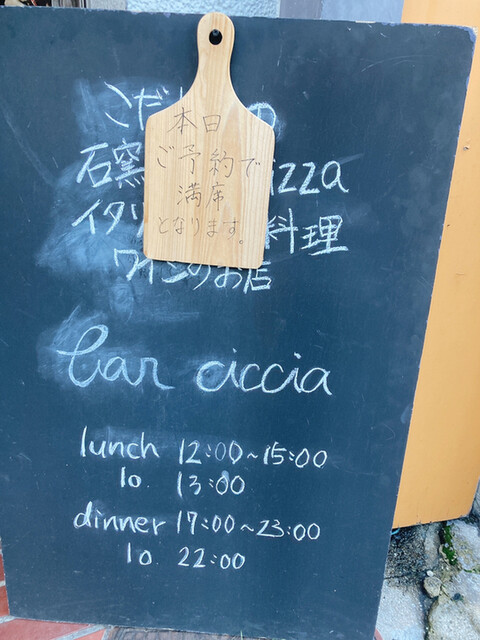 本日
ご予約で
満席
となります。
こだ の
石窯 izza
イタリ 料理
ワインのお店
bar ciccia
lunch 12:00~15:00
lo. 13:00
dinner 17:00~23:00
lo. 22:00